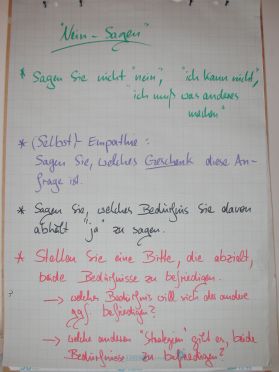 "Nein - Sagen"
* Sagen Sie nicht "nein", "ich kann nicht",
"ich muß was anderes
machen"
* (Selbst)- Empathie:
Sagen Sie, welches Geschenk diese An-
frage ist.
* Sagen Sie, welches Bedürfnis Sie davon
abhält "ja" zu sagen.
* Stellen Sie eine Bitte, die abzielt,
beide Bedürfnisse zu befriedigen.
→ welches Bedürfnis will sich der andere
ggf. befriedigen?
→ welche anderen "Strategien" gibt es, beide
Bedürfnisse zu befriedigen?